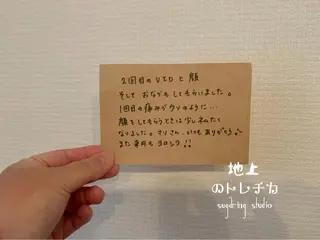 2回目のVIOと顔
そして おなかも してもらいました。
1回目の痛みがウソのように…
顔をしてもらうときは少しねたく
なりました。マリさん、いつもありがとう♪
また来月もヨロシク!!
地上
のトレチカ
sugaring studio